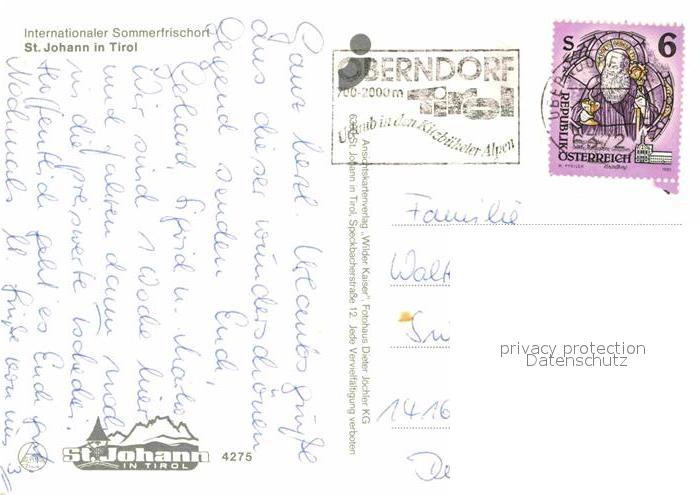 Internationaler Sommerfrischort
St. Johann in Tirol
Ganz herzl. Urlaubsgrüße
aus dieser wunderschönen
Gegend senden Euch,
Gerhard Sigrid u.
Wir sind 1 Woche hier
und fahren dann noch
in die
Hoffentlich geht es Euch gut
Nochmals lb. Grüße von uns 3
St. Johann
IN TIROL
4275
Ansichtskartenverlag „Wilder Kaiser“, Fotohaus Dieter Jöchler KG
6380 St. Johann in Tirol, Speckbacherstraße 12. Jede Vervielfältigung verboten
OBERNDORF
700-2000m
Tirol
Urlaub in den Kitzbüheler Alpen
S 6
REPUBLIK
ÖSTERREICH
Familie
Walt
1416
De
privacy protection
Datenschutz